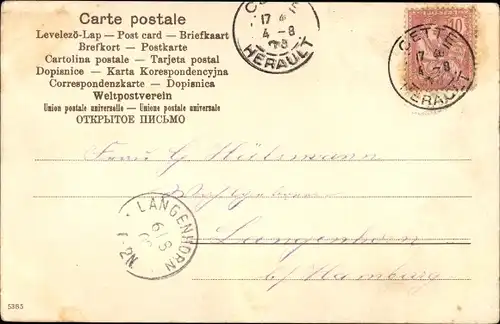 Carte postale
Levelező-Lap — Post card — Briefkaart
Brefkort — Postkarte
Cartolina postale — Tarjeta postal
Dopisnice — Karta Korespondencyjna
Correspondenzkarte — Dopisnica
Weltpostverein
Union postale universelle — Unione postale universale
ОТКРЫТОЕ ПИСЬМО
CETTE
17
4 - 8
HÉRAULT
10
CETTE
17
4 - 8
HÉRAULT
Frau G Hülsmann
Langenhorn
b/ Hamburg
LANGENHORN
6/8
1-2N
5385